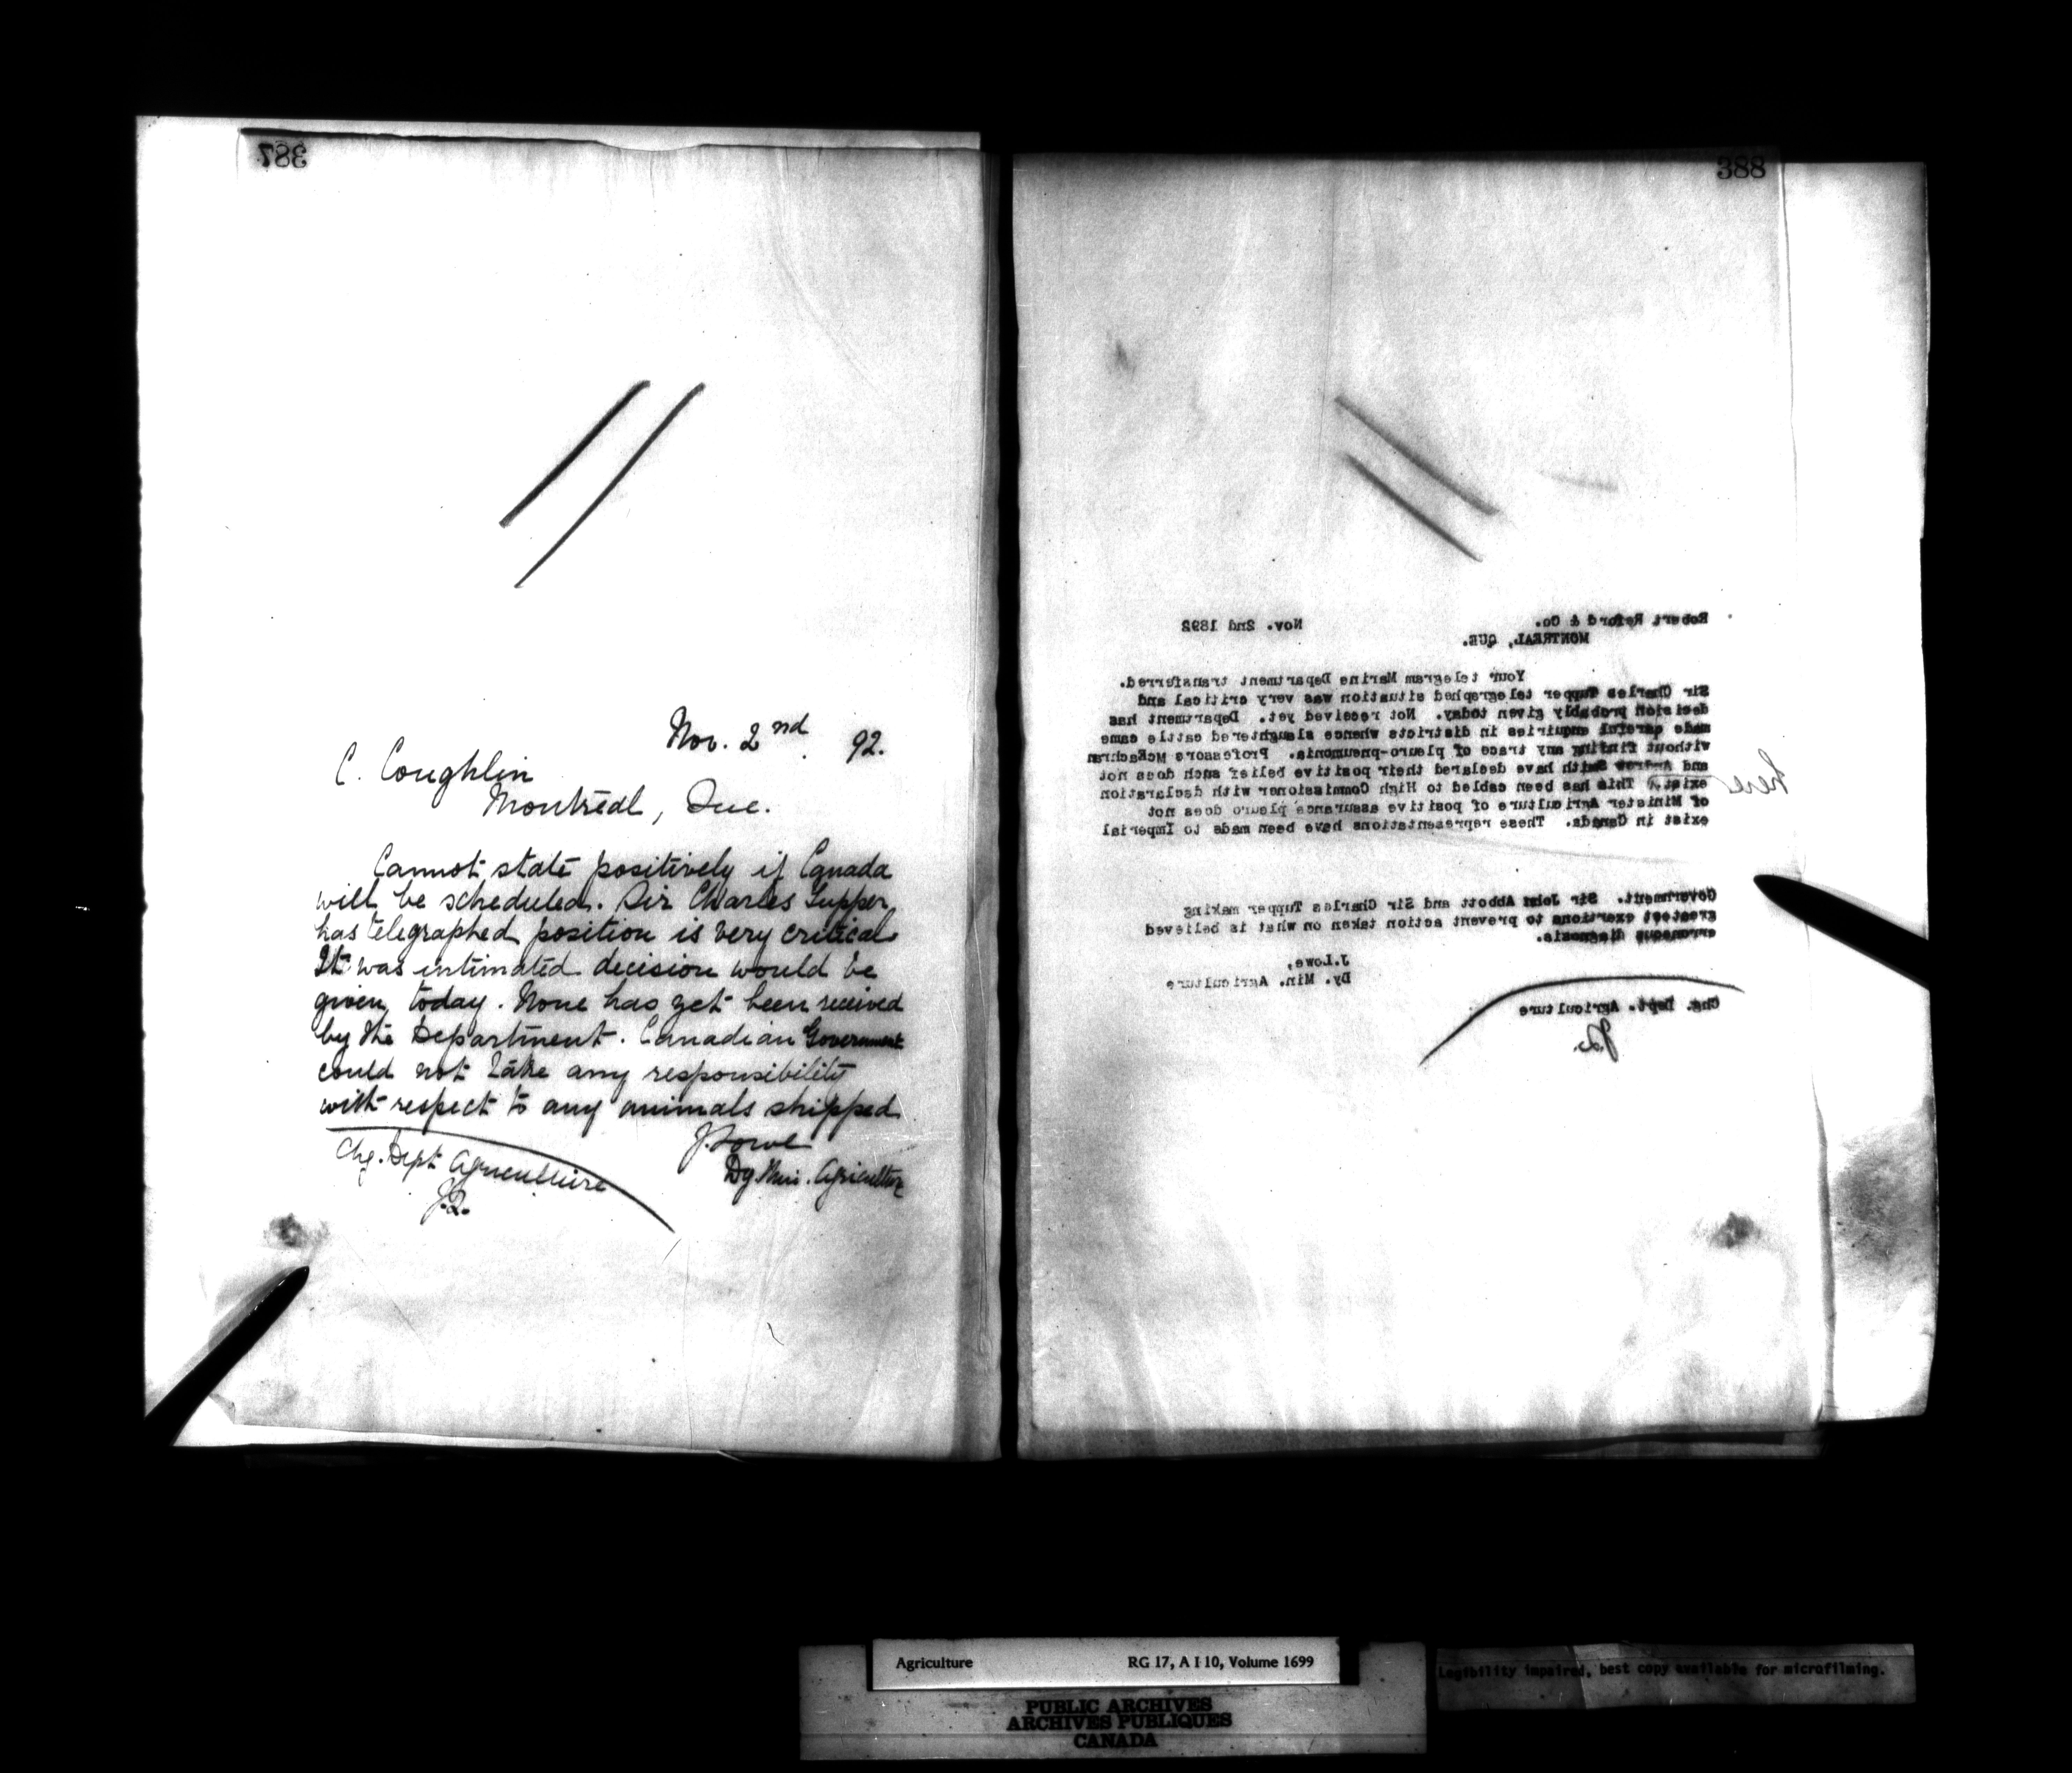 387
Nov. 2nd 92.
C. Coughlin
Montreal, Que.
Cannot state positively if Canada
will be scheduled. Sir Charles Tupper
has telegraphed position is very critical
It was intimated decision would be
given today. None has yet been received
by the Department. Canadian Government
could not take any responsibility
with respect to any animals shipped
J. Lowe
Dy. Min. Agriculture
Chg. Dept Agriculture
J.L.
388
Robert Reford & Co. Nov. 2nd 1892
MONTREAL, QUE.
Your telegram Marine Department transferred.
Sir Charles Tupper telegraphed situation was very critical and
decision probably given today. Not received yet. Department has
made careful enquiries in districts whence slaughtered cattle came
without finding any trace of pleuro-pneumonia. Professors McEachran
and Andrew Smith have declared their positive belief such does not
exist here. This has been cabled to High Commissioner with declaration
of Minister Agriculture of positive assurance pleuro does not
exist in Canada. These representations have been made to Imperial
Government. Sir John Abbott and Sir Charles Tupper making
greatest exertions to prevent action taken on what is believed
erroneous diagnosis.
J.Lowe,
Dy. Min. Agriculture
Chg. Dept. Agriculture
J.L.
Agriculture RG 17, A I 10, Volume 1699
PUBLIC ARCHIVES
ARCHIVES PUBLIQUES
CANADA
Legibility impaired, best copy available for microfilming.